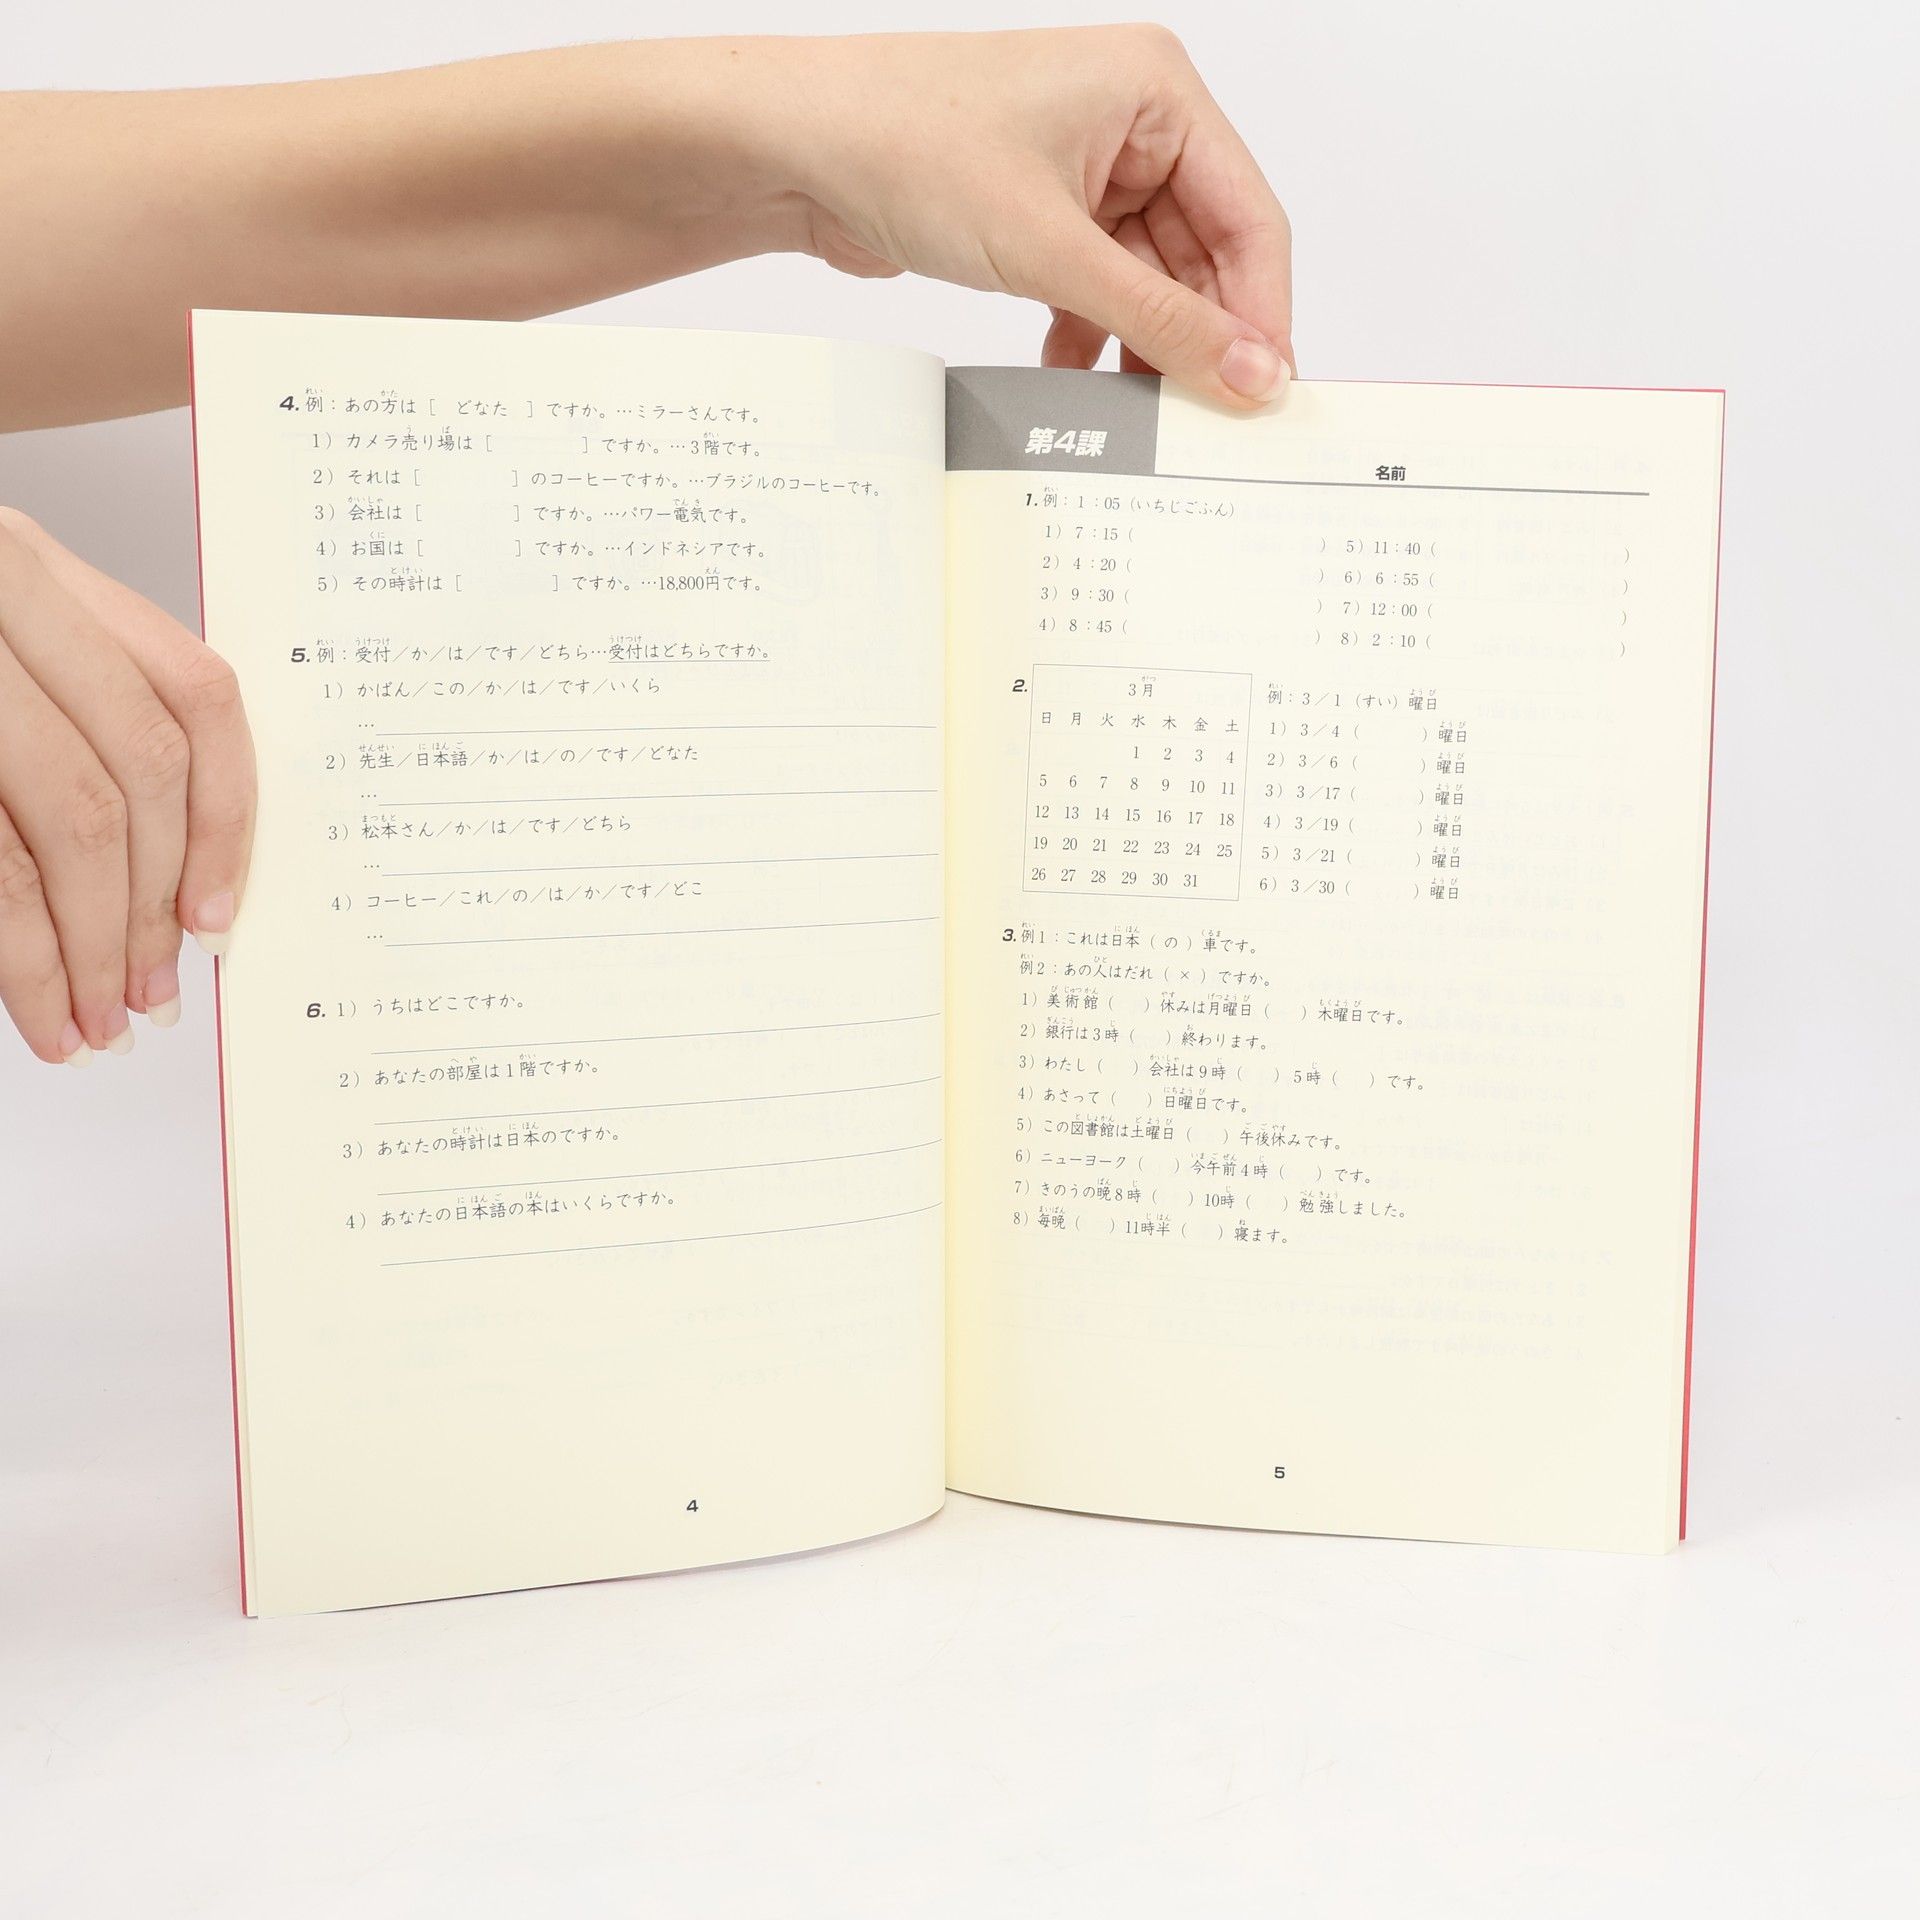 4. 例：あの方は［　どなた　］ですか。…ミラーさんです。
1）カメラ売り場は［　　　　］ですか。…3階です。
2）それは［　　　　］のコーヒーですか。…ブラジルのコーヒーです。
3）会社は［　　　　］ですか。…パワー電気です。
4）お国は［　　　　］ですか。…インドネシアです。
5）その時計は［　　　　］ですか。…18,800円です。
5. 例：受付／か／は／です／どちら…受付はどちらですか。
1）かばん／この／か／は／です／いくら
…
2）先生／日本語／か／は／の／です／どなた
…
3）松本さん／か／は／です／どちら
…
4）コーヒー／これ／の／は／か／です／どこ
…
6. 1）うちはどこですか。
2）あなたの部屋は1階ですか。
3）あなたの時計は日本のですか。
4）あなたの日本語の本はいくらですか。
4
第4課
名前
1. 例：1：05（いちじごふん）
1）7：15（　　　　）5）11：40（　　　　）
2）4：20（　　　　）6）6：55（　　　　）
3）9：30（　　　　）7）12：00（　　　　）
4）8：45（　　　　）8）2：10（　　　　）
2.
3月
日 月 火 水 木 金 土
1 2 3 4
5 6 7 8 9 10 11
12 13 14 15 16 17 18
19 20 21 22 23 24 25
26 27 28 29 30 31
例：3／1（すい）曜日
1）3／4（　　　）曜日
2）3／6（　　　）曜日
3）3／17（　　　）曜日
4）3／19（　　　）曜日
5）3／21（　　　）曜日
6）3／30（　　　）曜日
3. 例1：これは日本（の）車です。
例2：あの人はだれ（×）ですか。
1）美術館（　）休みは月曜日（　）木曜日です。
2）銀行は3時（　）終わります。
3）わたし（　）会社は9時（　）5時（　）です。
4）あさって（　）日曜日です。
5）この図書館は土曜日（　）午後休みです。
6）ニューヨーク（　）今午前4時（　）です。
7）きのうの晩8時（　）10時（　）勉強しました。
8）毎晩（　）11時半（　）寝ます。
5